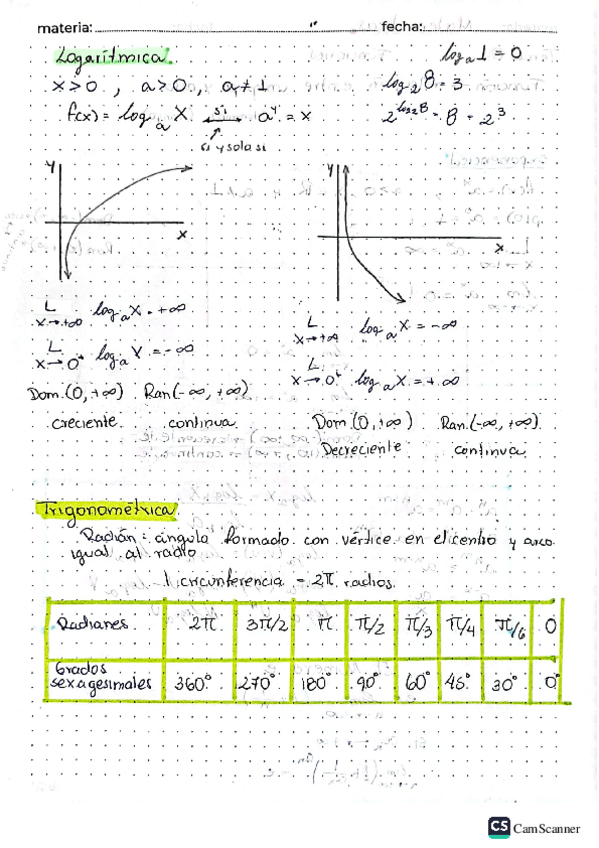 materia: fecha:
Logarítmica. logₐ1 = 0
x>0 , a>0, a≠1 log₂8 = 3
f(x) = logₐ x ⟷ aʸ = x 2^log₂8 = 8 = 2³
si
si y solo si
y y
x x
L x→+∞ logₐ x = +∞
L x→0⁺ logₐ x = -∞
Dom. (0, +∞) Ran (-∞, +∞)
creciente continua
L x→+∞ logₐ x = -∞
L x→0⁺ logₐ x = +∞
Dom. (0, +∞) Ran. (-∞, +∞)
Decreciente continua
Trigonométrica.
Radián = ángulo formado con vértice en el centro y arco
igual al radio
1 circunferencia = 2π radios.
Radianes 2π 3π/2 π π/2 π/3 π/4 π/6 0
Grados
sexagesimales 360° 270° 180° 90° 60° 45° 30° 0°
CS CamScanner